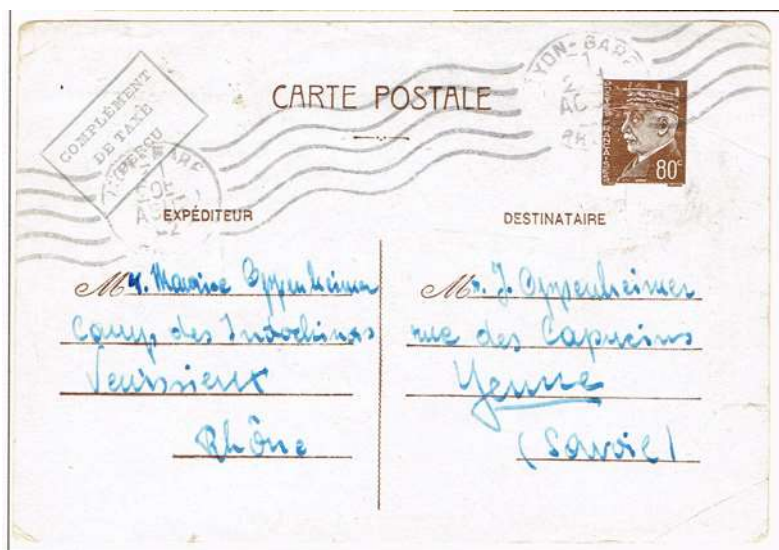 COMPLÉMENT
DE TAXE
PERÇU
LYON-GARE
CARTE POSTALE
POSTES FRANÇAISES
80c
EXPÉDITEUR
Mr. Maurice Oppenheimer
Camp des Indochinois
Venissieux
Rhône
DESTINATAIRE
Mr. J. Oppenheimer
rue des Capucins
Yenne
(Savoie)